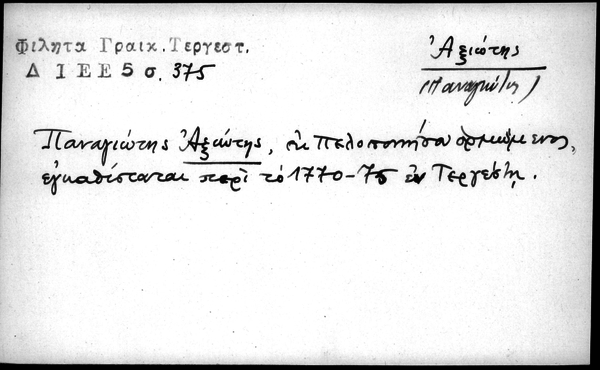 Φιλητα Γραικ. Τεργεστ.
Δ Ι Ε Ε 5 σ. 375
Ἀξιώτης
(Παναγιώτης)
Παναγιώτης Ἀξιώτης, ἐκ Πελοποννήσου ὁρμώμενος,
ἐγκαθίσταται περὶ τὸ 1770-75 ἐν Τεργέστῃ.